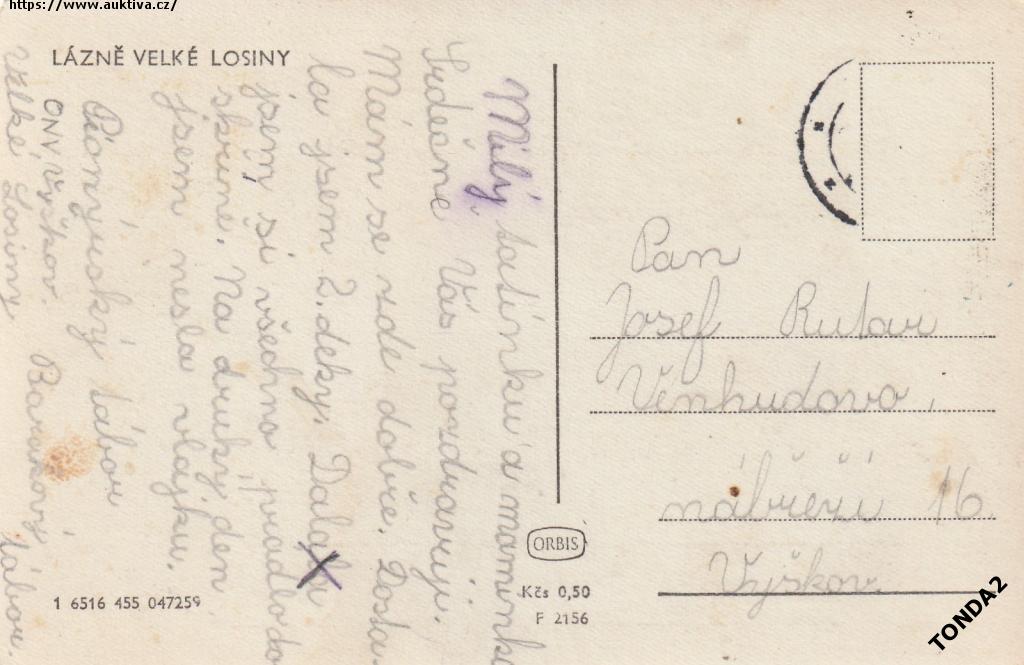 https://www.auktiva.cz/
LÁZNĚ VELKÉ LOSINY
Milý tatínku a mamink
Srdečně Vás pozdravuji.
Mám se zde dobře. Dosta-
la jsem 2. deky. Dala
jsem si všechno prádlo do
skříně. Na druhý den
jsem nesla vlajku.
Pionýrský tábor
ONV Vyškov. Barákový
Velké Losiny tábor.
Pan
Josef Rutar
Věnhudova,
nábřeží 16
Vyškov.
ORBIS
Kčs 0,50
F 2156
1 6516 455 047259
TONDA2